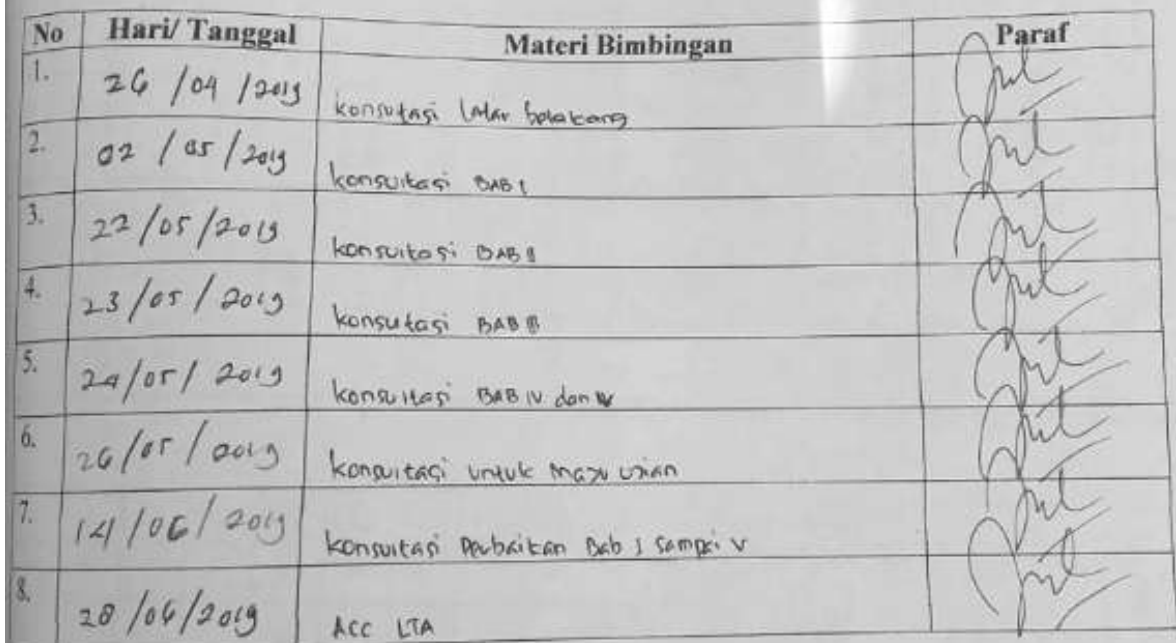 No Hari/ Tanggal Materi Bimbingan Paraf
1. 26 /04 /2019 konsutasi latar belakang
2. 02 / 05 /2019 konsultasi BAB I
3. 22/05/2019 konsultasi BAB II
4. 23/05/2019 konsultasi BAB III
5. 24/05/2019 konsultasi BAB IV dan V
6. 26/05/2019 konsultasi untuk maju ujian
7. 14/06/2019 konsultasi Perbaikan Bab I sampai V
8. 28/06/2019 ACC LTA